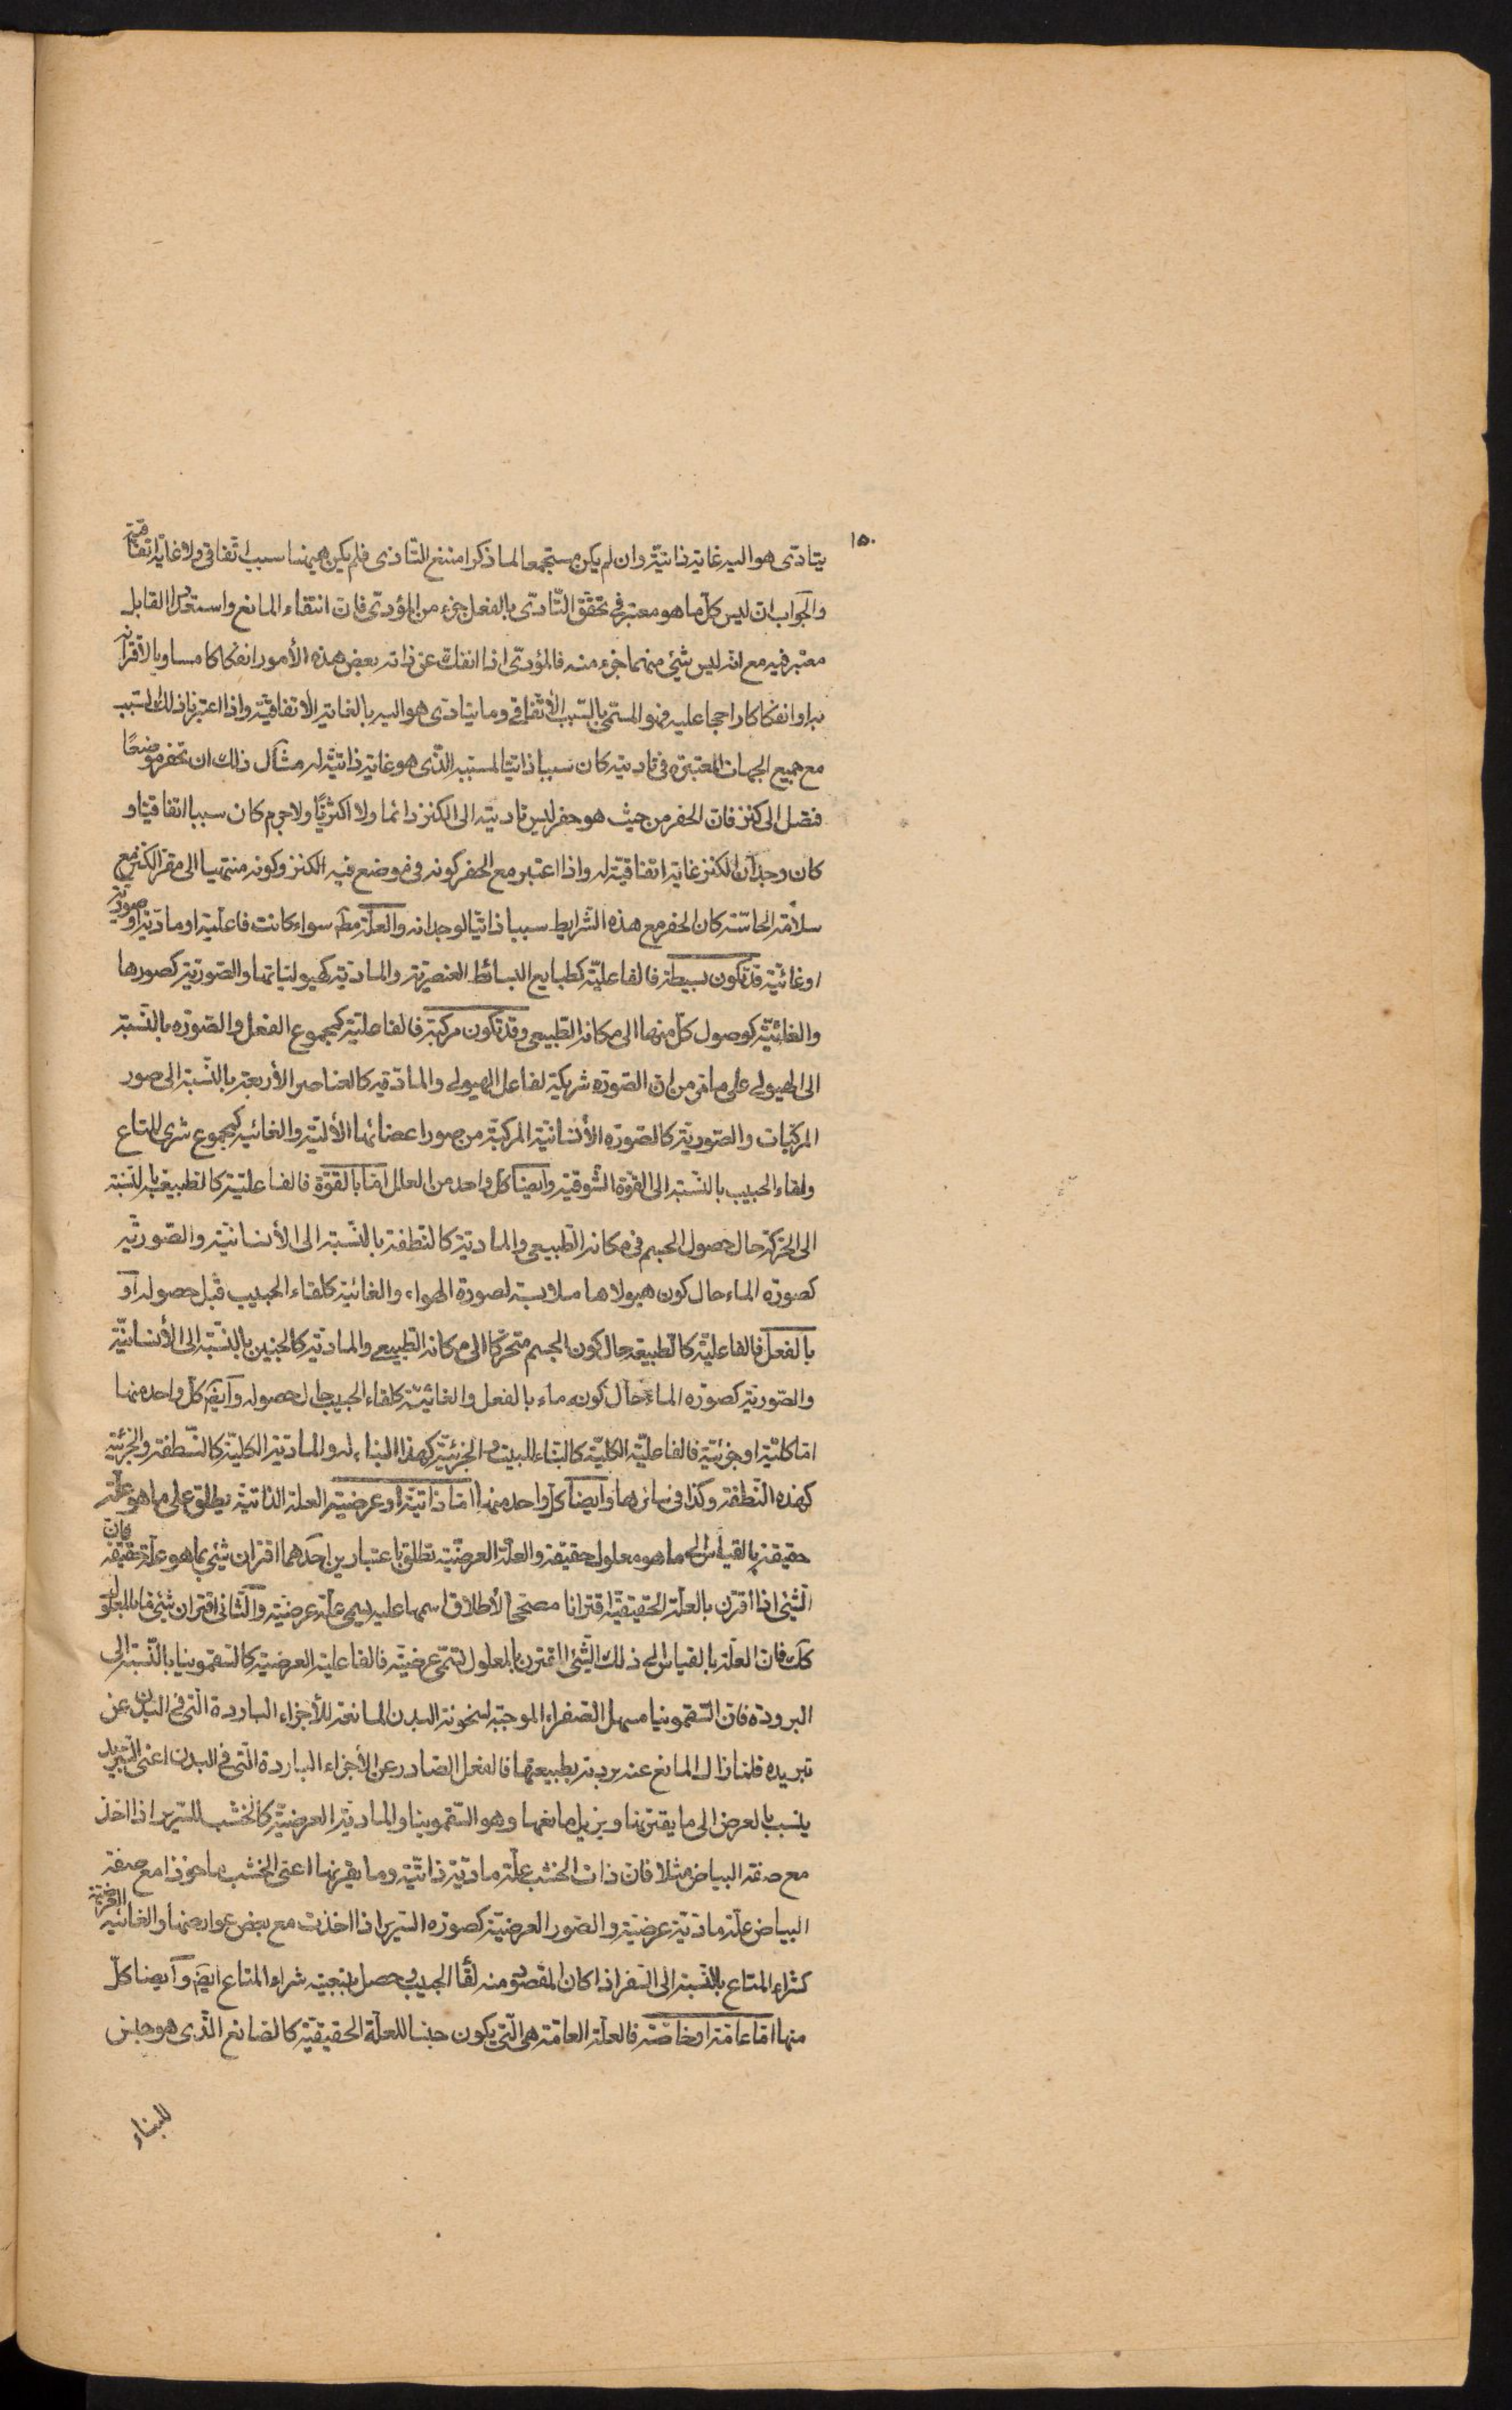 ١٥٠
يتادّى هو اليه غاية ذاتيّة وان لم يكن مستجمعا لما ذكر امتنع التّادّى فلم يكن ههنا سبب اتّفاقى ولا غاية اتّفاقيّة
والجواب ان ليس كلّ ما هو معتبر فى تحقّق التّادّى بالفعل جزء من المؤدّى فانّ انتفاء المانع واستعداد القابل
معتبر فيه مع انّه ليس شئ منهما جزء منه فالمؤدّى اذا انفكّ عن ذاته بعض هذه الأمور انفكاكا مساويا لاقترانه
به او انفكاكا راجحا عليه فهو المسمّى بالسّبب الأتّفاقى وما يتادّى هو اليه بالغاية الأتفاقيّة واذا اعتبرنا ذلك السّبب
مع جميع الجهات المعتبرة فى تاديته كان سببا ذاتيّا لمسببه الّذى هو غاية ذاتيّة له مثال ذلك ان تحفر موضعًا
فتصل الى كنز فانّ الحفر من حيث هو حفر ليس تاديته الى الكنز دائما ولا اكثريًّا ولا جرم كان سببا اتفاقيّا و
كان وجدان الكنز غاية اتفاقيّة له واذا اعتبر مع الحفر كونه فى موضع فيه الكنز وكونه منتهيا الى مقرّ الكنز مع
سلامة الحاسّة كان الحفر مع هذه الشّرايط سببا ذاتيّا لوجدانه والعلّة مط سواء كانت فاعليّة او مادّيّة او صوريّة
او غائيّة قد تكون بسيطة فالفاعليّة كطبايع البسائط العنصريّة والماديّة كهيولياتها والصّوريّة كصورها
والغائيّة كوصول كلّ منها الى مكانه الطّبيعى وقد تكون مركبّة فالفاعليّة كمجموع الفعل والصّورة بالنّسبة
الى الهيولى على ما مر من ان الصّورة شريكة لفاعل الهيولى والمادّيّة كالعناصر الأربعة بالنّسبة الى صور
المركّبات والصّوريّة كالصّورة الأنسانيّة المركبّة من صور اعضائها الألية والغائيه كمجموع شرى المتاع
ولقاء الحبيب بالنّسبة الى القوّة الشّوقيّة وايضا كلّ واحد من العلل امّا بالقوّة فالفاعليّة كالطبيعة بالنّسبة
الى الحركة حال حصول الجسم فى مكانه الطّبيعى والمادّيّة كالنّطفة بالنّسبة الى الأنسانيّة والصّوريّة
كصورة الماء حال كون هيولاها ملابسة لصورة الهواء والغائيّة كلقاء الحبيب قبل حصوله او
بالفعل فالفاعليّة كالطبيعة حال كون الجسم متحرّكا الى مكانه الطّبيعى والمادّيّة كالجنين بالنّسبة الى الأنسانيّة
والصّوريّة كصورة الماء حال كونه ماء بالفعل والغائيّة كلقاء الحبيب حال حصوله وايض كلّ واحد منها
امّا كليّة او جزئيّة فالفاعليّة الكليّة كالبنّاء للبيت والجزئيّة كهذا البنّاء له والمادّيّة الكليّة كالنّطفة والجزئية
كهذه النّطفة وكذا فى سائرها وايضا كلّ واحد منها امّا ذاتيّة او عرضيّة العلّة الذّاتيّة يطلق على ما هو علّة
حقيقة بالقياس الى ما هو معلول حقيقة والعلّة العرضيّة تطلق باعتبارين احدهما اقتران شئ بما هو علّة حقيقة فان
الشّئ اذا اقترن بالعلّة الحقيقيّة اقترانا مصحّحا لأطلاق اسمها عليه يسمى علّة عرضيّة والثّانى اقتران شئ ما بالمعلول
كك فانّ العلّة بالقياس الى ذلك الشّئ المقترن بالمعلول تسمّى عرضيّة فالفاعلية العرضيّة كالسّقمونيا بالنّسبة الى
البرودة فانّ السّقمونيا مسهل الصّفراء الموجبة لسخونة البدن المانعة للأجزاء الباردة الّتى فى البدن عن
تبريده فلمّا زال المانع عنه بردته بطبيعتها فالفعل الصّادر عن الأجزاء الباردة الّتى فى البدن اعنى التّبريد
ينسب بالعرض الى ما يقترنها ويزيل مانعها وهو السّقمونيا والمادّيّة العرضيّة كالخشب للسّرير اذا اخذ
مع صفة البياض مثلا فانّ ذات الخشب علّة مادّيّة ذاتيّة وما يقرنها اعنى الخشب ماخوذا مع صفة
البياض علّة مادّيّة عرضيّة والصّور العرضيّة كصورة السّرير اذا اخذت مع بعض عوارضها والغائية العرضيّة
كشراء المتاع بالنّسبة الى السّفر اذا كان المقصود منه لقاء الحبيب وحصل بتبعيته شراء المتاع ايض وايضا كلّ
منها امّا عامّة او خاصّة فالعلّة العامّة هى الّتى يكون جنسا للعلّة الحقيقيّة كالصّانع الّذى هو جنس
للبناء